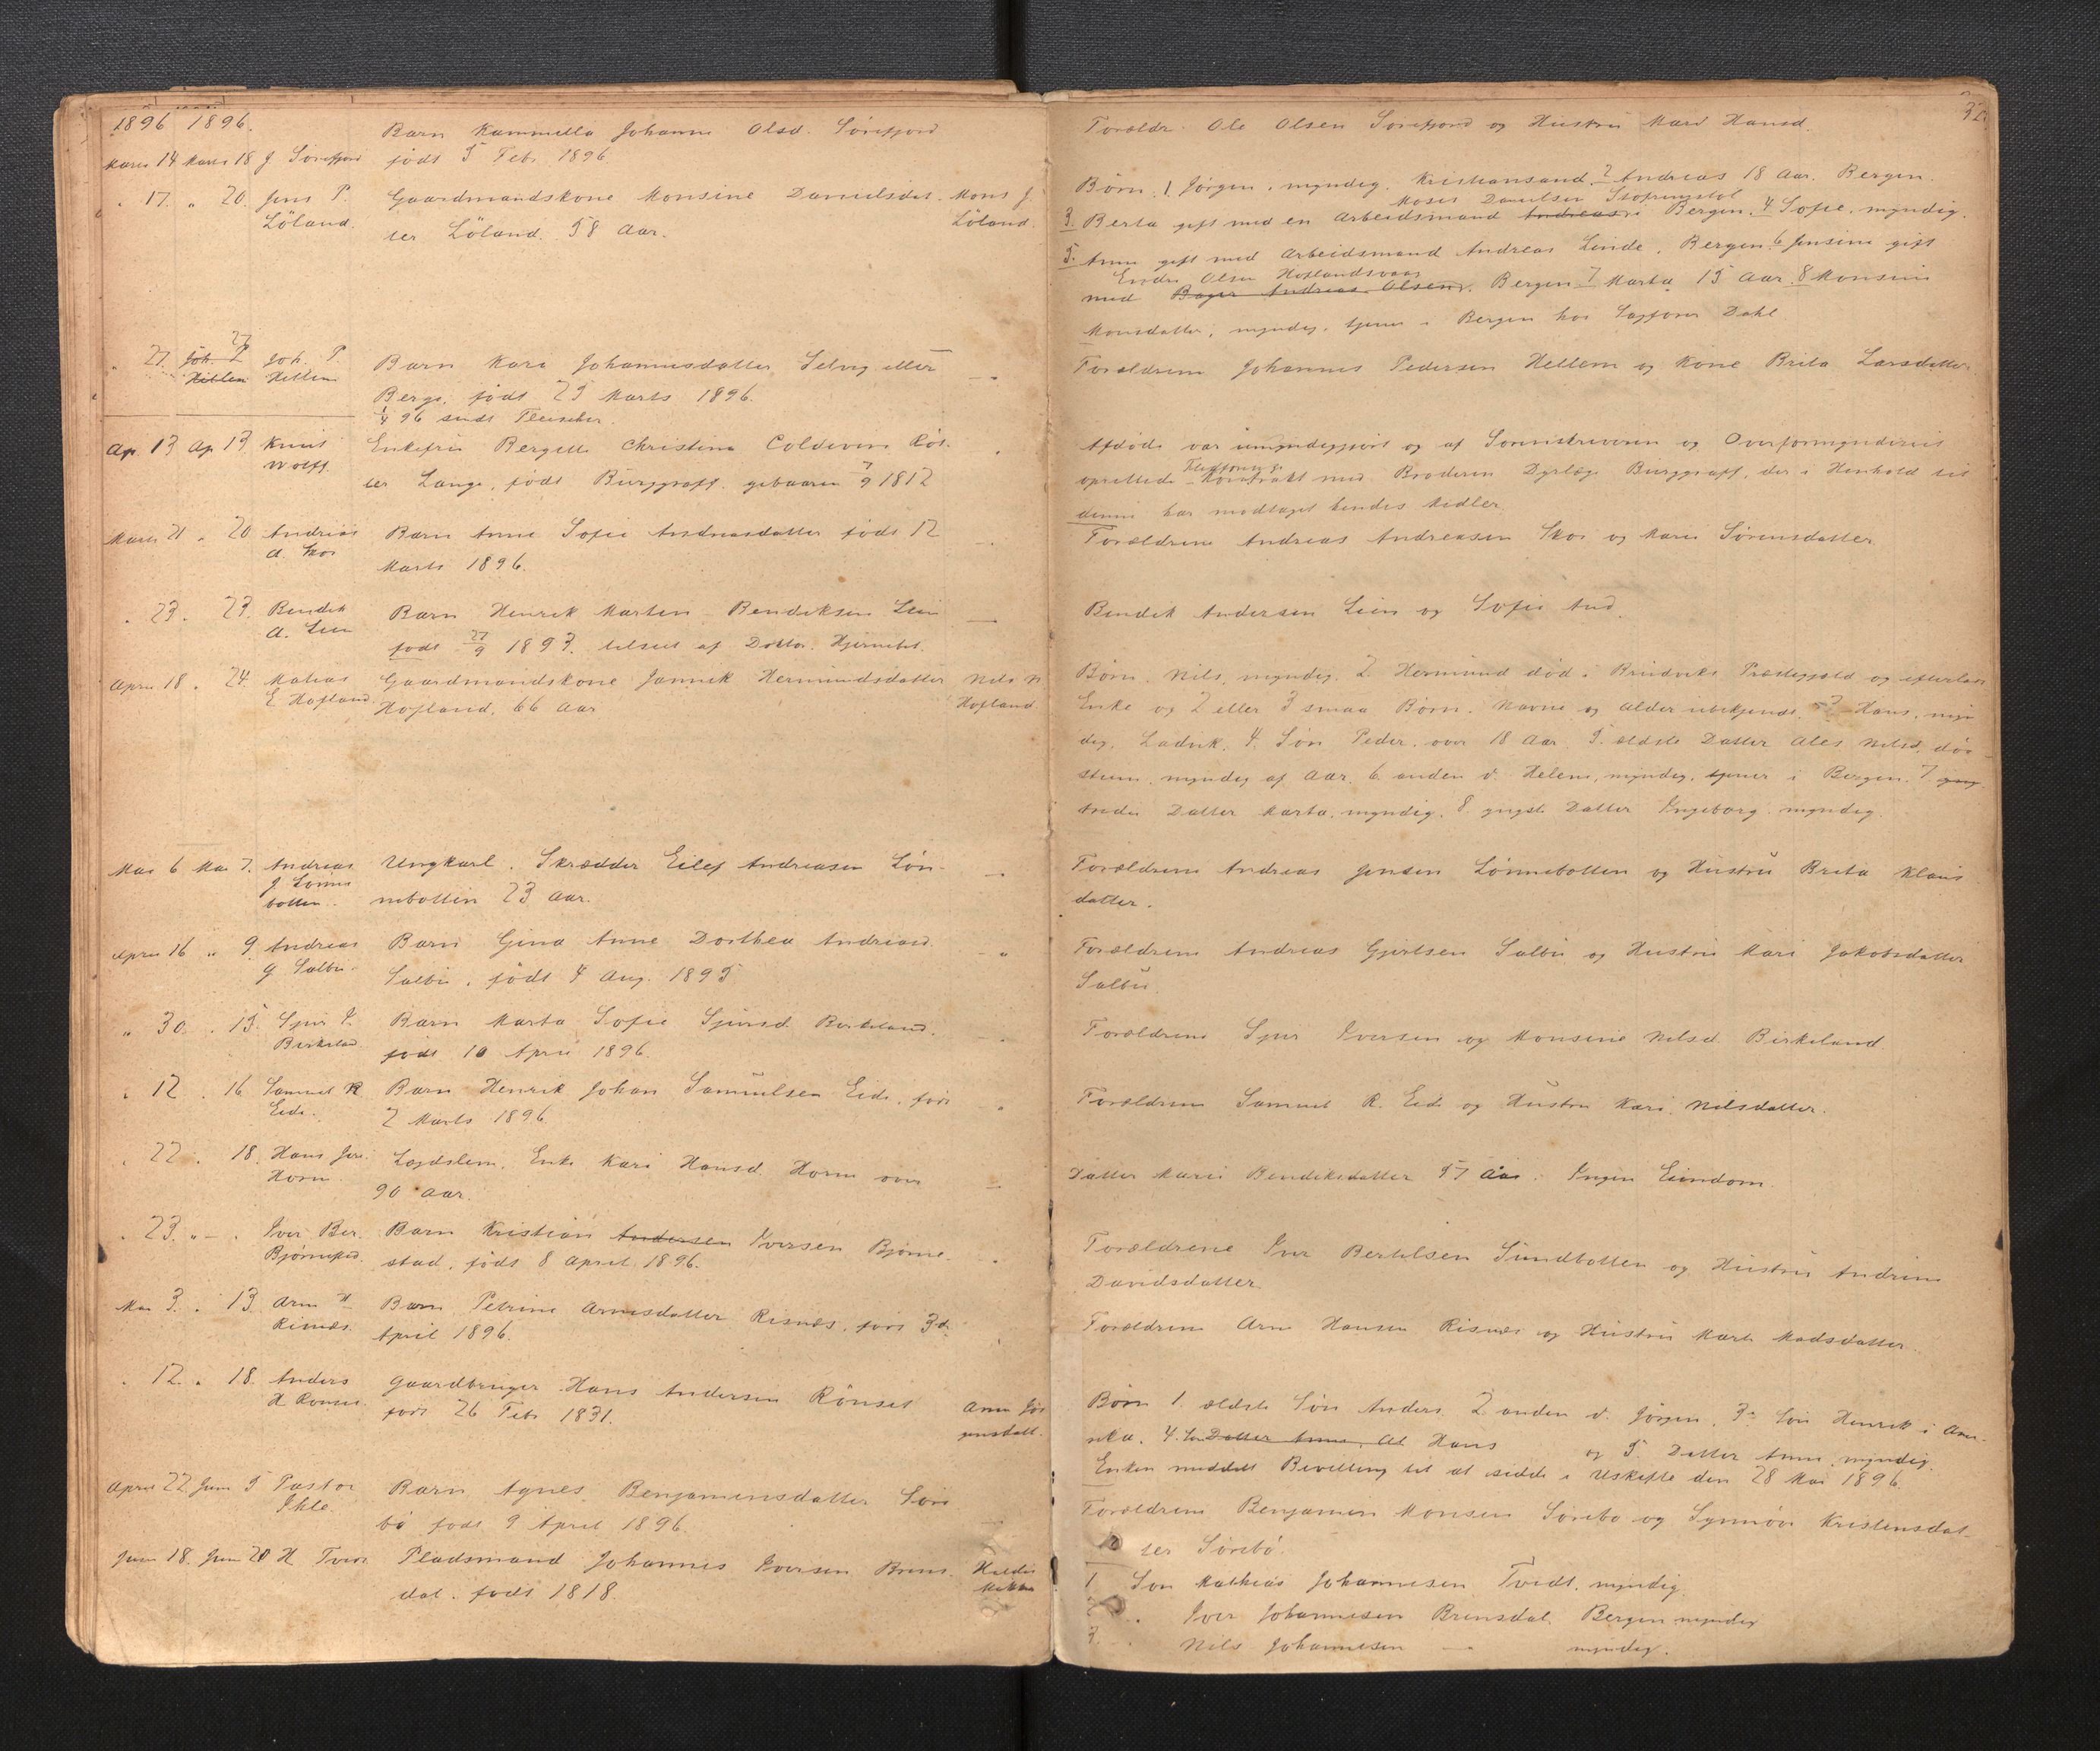 1896 1896.
Barn Kammilla Johanne Olsd. Sörefjord
Marts 14 Marts 18 J Sörefjord födt 5 Feb. 1896.
" 17. " 20. Jens P. Gaardmandskone Monsine Danielsdat- Mons J.
Löland. ter Löland. 58 Aar. Löland.
27
" 27. Joh. P Joh. P. Barn Kari Johannesdatter Selvig eller
Hillen Hellem Berge, födt 23 Marts 1896.
1/4 96 sendt Fleischer.
Ap. 13 Ap 13 Knut Enkefru Bergette Christine Coldevin Rös-
Wolff. ter Lange, födt Burggraff. gebaaren 7/9 1812
Marts 21 " 20 Andreas Barn Anne Sofie Andreasdatter födt 12
A. Skor Marts 1896.
" 23. " 23. Bendik Barn Henrik Marten Bendiksen Lein
A. Lein födt 27/9 1893. tilseet af Doktor. Hjernebet.
April 18 " 24. Matias Gaardmandskone Jannik Hermundsdatter Nils N
E Hofland Hofland, 66 Aar Hofland.
Mai 6 Mai 7. Andreas Ungkarl. Skrædder Eilef Andreasen Lön-
J Lönne nebotten 23 Aar.
botten.
April 16 " 9. Andreas Barn Gina Anne Dorthea Andreasd.
G Salbu. Salbu. födt 4 Aug. 1895
" 30. " 15. Sjur I. Barn Marta Sofie Sjursd. Birkeland.
Birkeland födt 10 April 1896.
" 12 " 16 Samuel R Barn Henrik Johan Samuelsen Eide, födt
Eide. 2 Marts 1896
" 22 " 18. Hans Jens. Lægdslem. Enke Kari Hansd. Horne over
Horn. 90 Aar.
" 23. " - " Iver Ber. Barn Kristian Andersen Iversen Bjørne-
Bjørnestad. stad, födt 8 April 1896.
Mai 3. " 13. Arne H Barn Petrine Arnesdatter Risnæs, födt 3d
Risnæs. April 1896.
" 12 " 18. Anders Gaardbruger Hans Andersen Rönset Anne Jör
H Rönset. födt 26 Feb. 1831. gensdatt.
April 22 Juni 5 Pastor Barn Agnes Benjaminsdatter Söre
Ihle. bö födt 9 April 1896.
Juni 18. Juni 20 H Tvedt Pladsmand Johannes Iversen Brens-
dal. födt 1818.
32.
Forældr. Ole Olsen Sörefjord og Hustru Mari Hansd.
Börn. 1 Jörgen, myndig. Kristiansand. 2 Andreas 18 Aar. Bergen.
Moses Danielsen
3. Berta gift med en Arbeidsmand Andreas i Bergen. 4 Sofie, myndig.
5. Anne gift med Arbeidsmand Andreas Linde. Bergen. 6 Jensine gift
Endre Olsen Hoplandsvaag
med Bager Andreas Olsen. Bergen. 7 Marta 15 Aar. 8 Monsine
Monsdatter, myndig. tjener i Bergen hos Sagfører Dahl
Forældrene Johannes Pedersen Hellem og Kone Brita Larsdatter.
Afdøde var umyndiggjort og af Sorenskriveren og Overformynderiet
oprettede Kontrakt med Broderen Dyrlæge Burggraff, der i Henhold til
denne har modtaget hendes Midler.
Forældrene Andreas Andreasen Skor og Marie Sörensdatter.
Bendik Andersen Lien og Sofie And.
Börn. Nils, myndig. 2. Hermund död i Brudviks Præstegjeld og efterlader
Enke og 2 eller 3 smaa Börn. Navne og Alder ubekjendt. 3 Hans, myn
dig. Ladvik. 4. Sön Peder. over 18 Aar 5. ældste Datter Ales Nilsd. döv
stum. myndig af Aar. 6 anden d. Helene, myndig. tjener i Bergen. 7 yng
tredie Datter Marta, myndig. 8 yngste Datter Ingeborg. myndig.
Forældrene Andreas Jensen Lönnebotten og Hustru Brita Klaus
datter.
Forældrene Andreas Gjertsen Salbu og Hustru Kari Jakobsdatter
Salbu.
Forældrene Sjur Iversen og Monsine Nilsd. Birkeland.
Forældrene Samuel R. Eide og Hustru Kari Nilsdatter.
Datter Marie Bendiksdatter 57 Aar. Ingen Eiendom.
Forældrene Iver Bertelsen Sundbotten og Hustru Andrine
Davidsdatter.
Forældrene Arne Hansen Risnæs og Hustru Marte Madsdatter.
Börn 1. ældste Sön Anders 2 anden d. Jörgen, 3. Sön Henrik i Ame-
rika. 4. Sön Datter Anne, At Hans og 5 Datter Anne, myndig.
Enken meddelt Bevilling til at sidde i Uskifte den 28 Mai 1896.
Forældrene Benjamin Monsen Sörebö og Synnöve Kristensdat
ter Sörebö.
1 Sön Mathias Johannesen Tvedt, myndig.
2 " Iver Johannesen Brensdal. Bergen myndig
3. " Nils Johannesen — myndig.